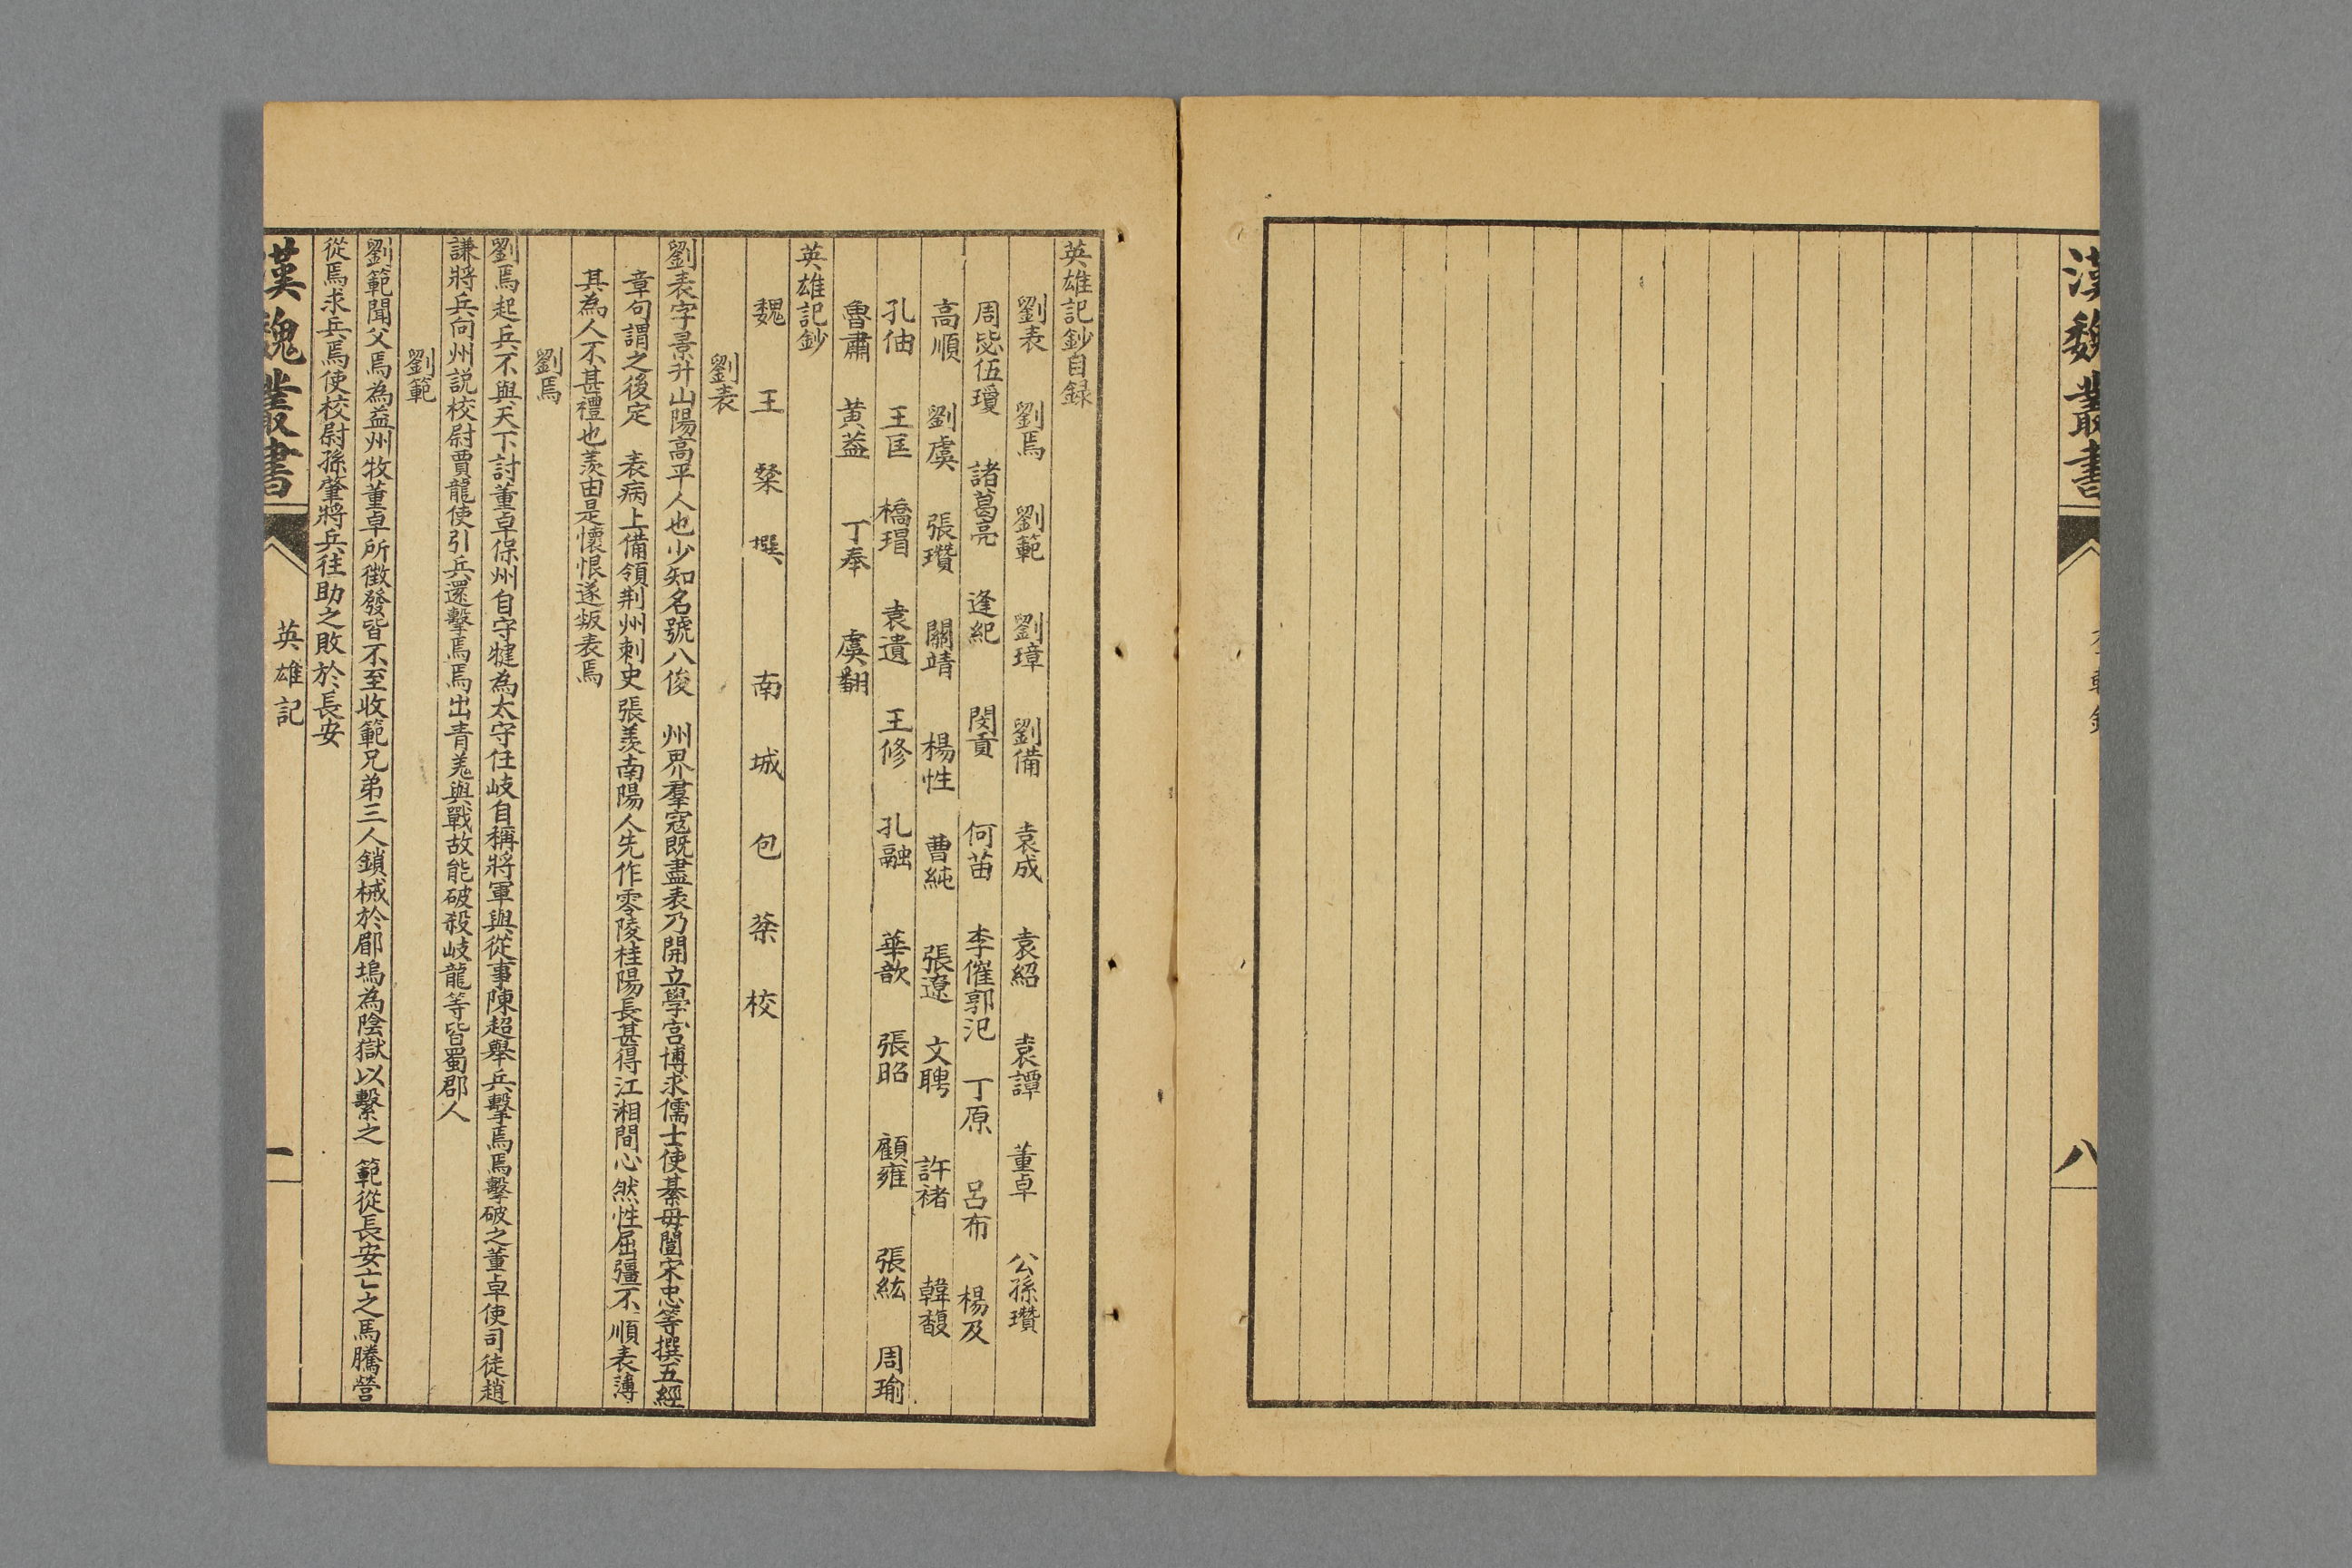 漢魏叢書
八
英雄記鈔目録
劉表 劉焉 劉範 劉璋 劉備 袁成 袁紹 袁譚 董卓 公孫瓚
周毖伍瓊 諸葛亮 逢紀 閔貢 何苗 李傕郭汜 丁原 呂布 楊及
高順 劉虞 張瓚 關靖 楊性 曹純 張遼 文聘 許褚 韓馥
孔伷 王匡 橋瑁 袁遺 王修 孔融 華歆 張昭 顧雍 張紘 周瑜
魯肅 黃蓋 丁奉 虞翻
英雄記鈔
魏 王粲撰 南城 包 校
劉表
劉表字景升山陽高平人也少知名號八俊 州界羣寇既盡表乃開立學宫博求儒士使綦毋闓宋忠等撰五經
章句謂之後定 表病上備領荆州刺史 張羨南陽人先作零陵桂陽長甚得江湘間心然性屈彊不順表薄
其為人不甚禮也羨由是懷恨遂叛表焉
劉焉
劉焉起兵不與天下討董卓保州自守犍為太守任岐自稱將軍與從事陳超舉兵擊焉焉擊破之董卓使司徒趙
謙將兵向州説校尉賈龍使引兵還擊焉焉出青羗與戰故能破殺岐龍等皆蜀郡人
劉範
劉範聞父焉為益州牧董卓所徵發皆不至收範兄弟三人鎖械於郿塢為陰獄以繫之 範從長安亡之馬騰營
從焉求兵焉使校尉孫肇將兵往助之敗於長安
漢魏叢書
英雄記
一